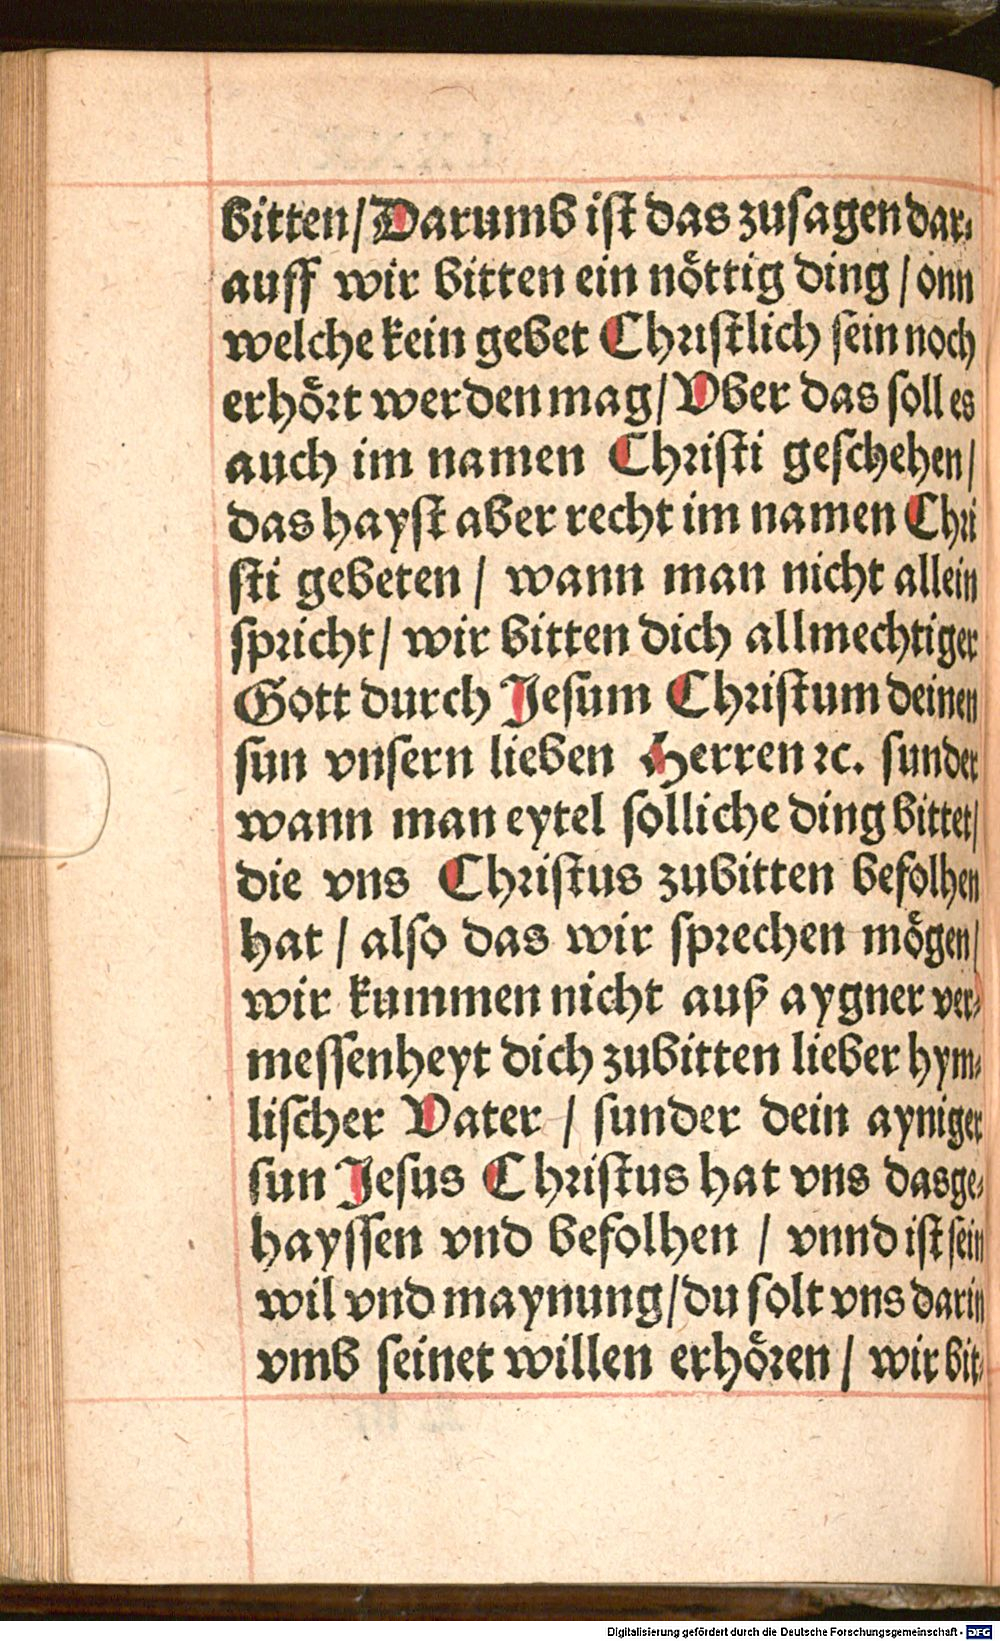 bitten/ Darumb ist das zusagen dar⸗
auff wir bitten ein nöttig ding / önn
welche kein gebet Christlich sein noch
erhört werden mag/ Vber das soll es
auch im namen Christi geschehen/
das hayst aber recht im namen Chri
sti gebeten / wann man nicht allein
spricht/ wir bitten dich allmechtiger
Gott durch Jesum Christum deinen
sun vnsern lieben Herren ꝛc. sunder
wann man eytel solliche ding bittet/
die vns Christus zubitten befolhen
hat / also das wir sprechen mögen/
wir kummen nicht auß aygner ver⸗
messenheyt dich zubitten lieber hym⸗
lischer Vater / sunder dein ayniger
sun Jesus Christus hat vns das ge⸗
hayssen vnd befolhen / vnnd ist sein
wil vnd maynung/ du solt vns darin
vmb seinet willen erhören / wir bit⸗
Digitalisierung gefördert durch die Deutsche Forschungsgemeinschaft - DFG